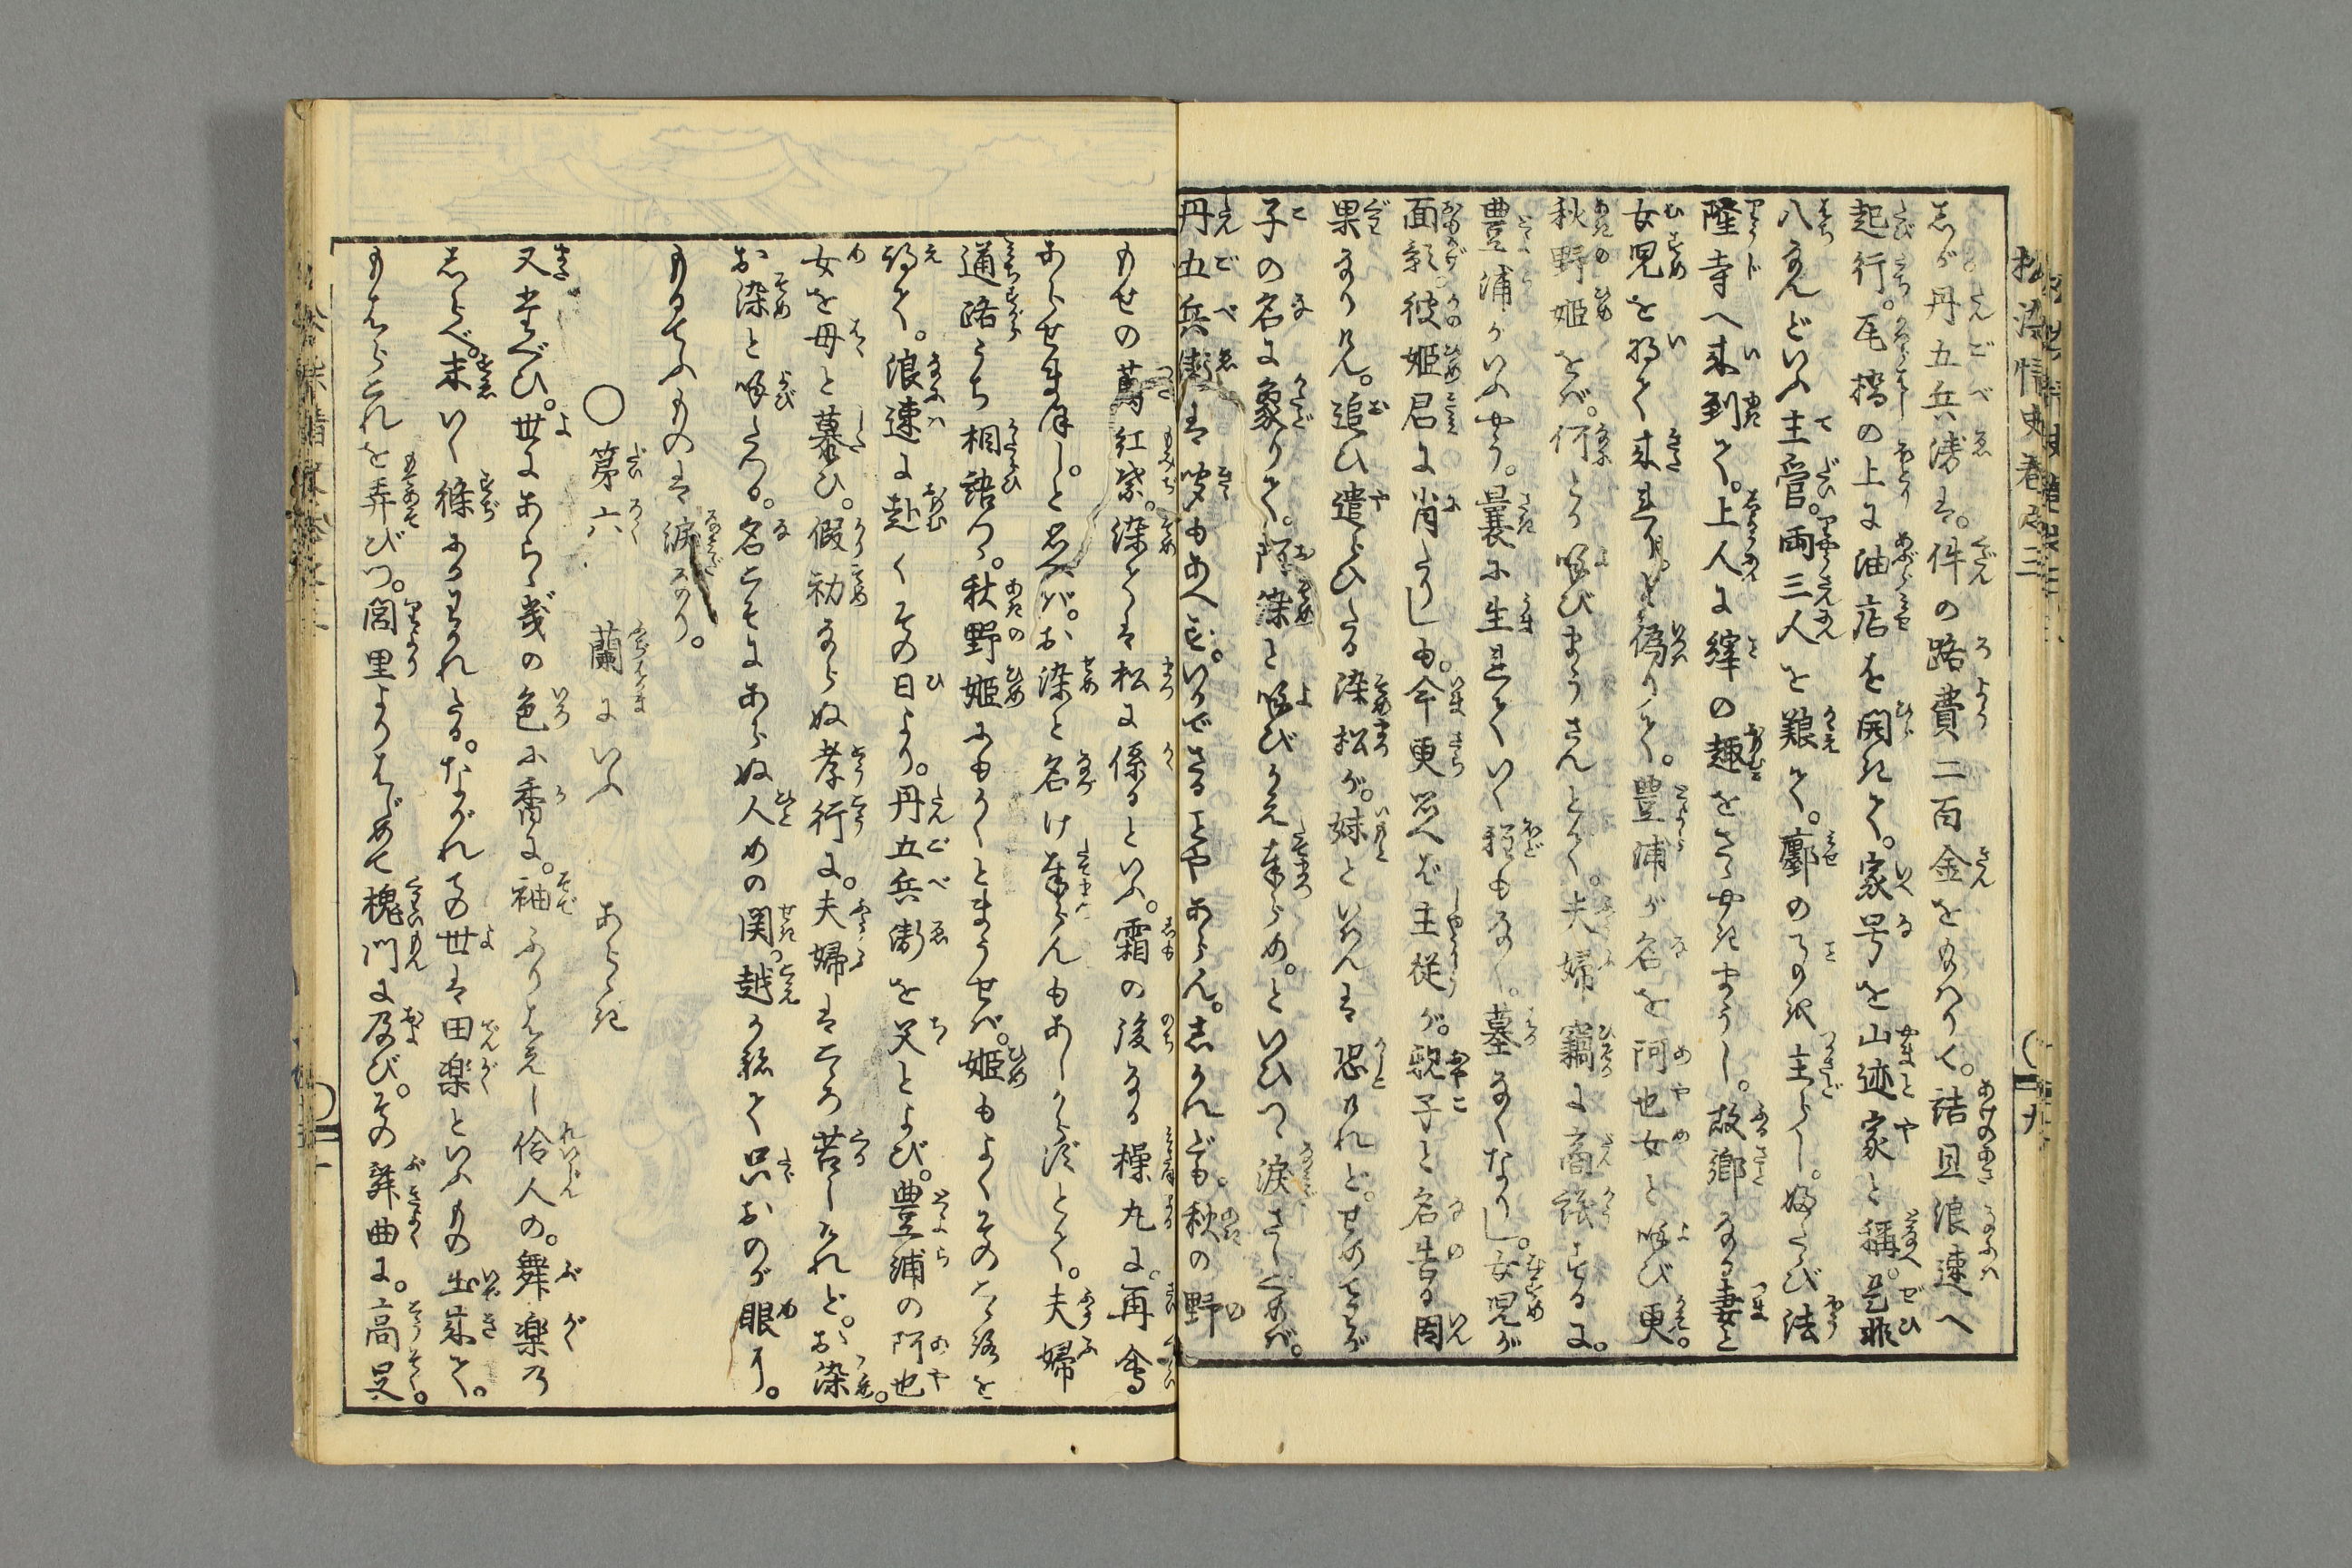 しが丹五兵衛は。件の路費二百金をものうく。詰旦浪速へ
起行。瓦橋の上に油店を開きて。家号を山迹家と稱。是非
八なんどいふ主管。両三人を艱て。鄽の事を主らし。ふたたび法
隆寺へ来到て。上人に縡の趣をささやきまうし。故郷なる妻と
女児を将て来れりと偽りて。豊浦が名を阿也女と呼び更。
秋野姫をば。何とか呼びまうさんとて。夫婦竊に商議するに。
豊浦がいふやう。曩に生れていく程もなく。墓なくなりし。女児が
面影彼姫君に肖たりしも。今更思へば主従が。親子と名告る因
果なりけん。追ひ遣らひたる染松が。妹といはんは恐れど。せめてわが
子の名に象りて。阿染と呼びかえ奉らめ。といひつつ涙さしぐめば。
丹五兵衛は咲もあへず。いかでさる事やあらん。しかれども。秋の野
もせの蔦紅葉。染とは松に係るといふ。霜の後なる操丸に。再會
あらせまほし。と思へば。お染と名け奉らんもあしからじとて。夫婦
通路うち相語つつ。秋野姫にもかくとまうせば。姫もよくその意を
得て。浪速に赴くその日より。丹五兵衛を父とよび。豊浦の阿也
女を母と慕ひ。假初ならぬ孝行に。夫婦はこころ苦しけれど。お染
お染と呼たつる。名こそにあらぬ人めの関。越かねて只おのが眼に。
もるてふものは涙なり。
○第六 蘭にいふ あらき
又たぐひ。世にあらじ幾の色に香に。袖ふりはえし伶人の。舞楽乃
しらべ。末いく條にかわかれたる。ながれての世は田楽といふもの出来て。
もはらこれを弄びつ。閭里よりはじめて槐門に及び。その舞曲に。高足